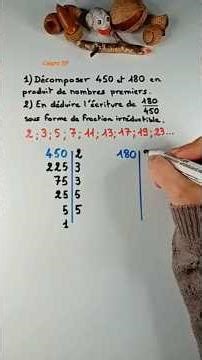 1) Décomposer 450 et 180 en
produit de nombres premiers.
2) En déduire l'écriture de 180/450
sous forme de fraction irréductible.
2 ; 3 ; 5 ; 7 ; 11 ; 13 ; 17 ; 19 ; 23...
450 | 2
225 | 3
75 | 3
25 | 5
5 | 5
1
180 |